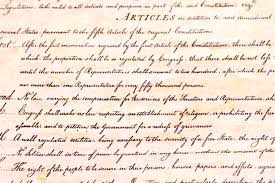 Legislatures, to be valid to all intents and purposes as part of the said Constitution, viz.
Articles in addition to, and amendment
several States, pursuant to the fifth Article of the original Constitution.
After the first enumeration required by the first Article of the Constitution, there shall be
which the proportion shall be so regulated by Congress, that there shall be not
until the number of Representatives shall amount to two hundred, after which the
nor more than one Representative for every fifty thousand persons.
No law, varying the compensation for the services of the Senators and Representatives, shall
Congress shall make no law respecting an establishment of religion, or prohibiting the free
assemble, and to petition the Government for a redress of grievances.
A well regulated militia, being necessary to the security of a free State, the right of
No Soldier shall, in time of peace be quartered in any house, without the consent of the
The right of the people to be secure in their persons, houses, papers, and effects, against